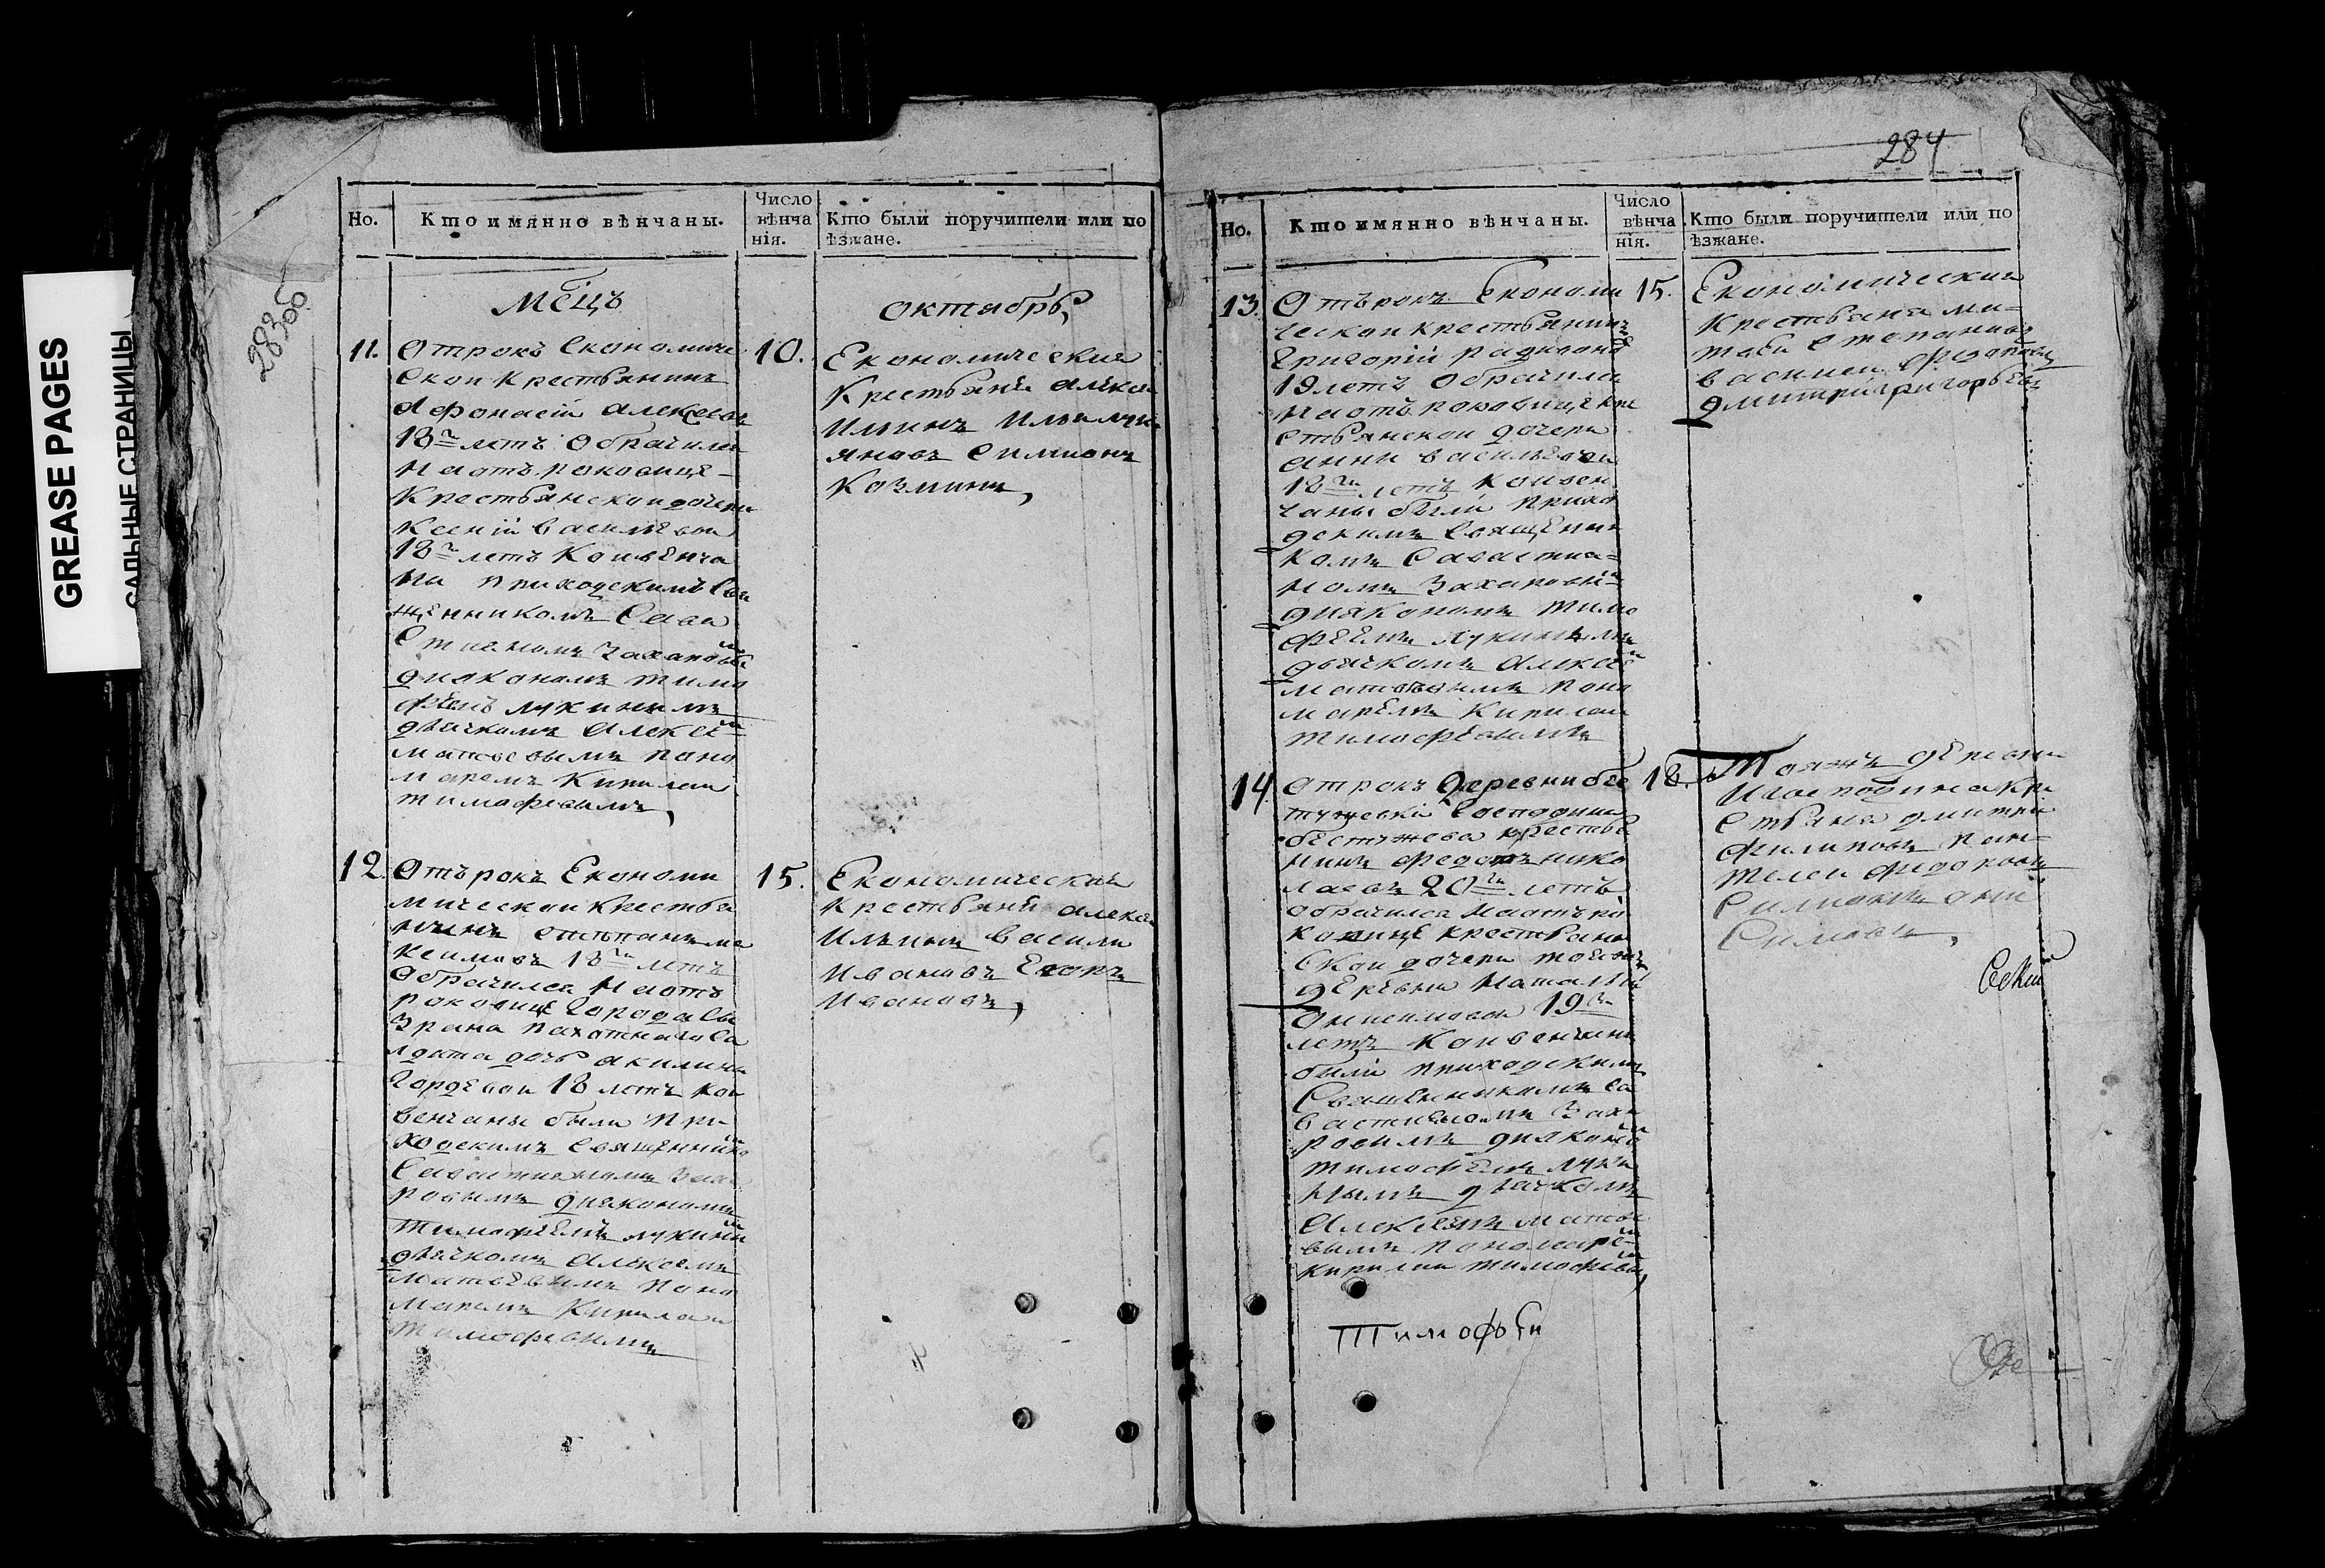 GREASE PAGES
САЛЬНЫЕ СТРАНИЦЫ
283 об
Но.
Кто имянно вѣнчаны.
Число
вѣнча
нія.
Кто были поручители или по
ѣзжане.
Мѣцъ
октябрь
11.
Отрокъ Економиче
ской крестьянинъ
Афонасій алексѣевъ
18 летъ обрачился
на отъроковице
крестьянской дочери
ксеніи василевой
18 летъ кои венча
ны приходскимъ свя
щенникомъ Сава
стианомъ захаровы
диякономъ тимо
феемъ лукинымъ
дьячкомъ алексѣе
матвеевымъ поно
маремъ Кирилам
тимофеевымъ
10.
Економические
крестьяне алексеи
ильинъ илья лукь
яновъ симионъ
козминъ
12.
Отърокъ Економи
мической крестья
нинъ степанъ ма
ксимовъ 18 летъ
обрачился на отъ
роковице города сы
зрана пахотнаго са
лдата дочь акилины
гордеевой 18 летъ кои
венчаны были при
ходскимъ священнико
Савастианомъ заха
ровымъ диякономъ
тимофеемъ лукины
дьячкомъ алексеемъ
матвеевымъ поно
маремъ Кирилам
тимофеевымъ
15.
Економические
крестьяне алексеи
ильинъ василеи
ивановъ Егоръ
ивановъ
284
Но.
Кто имянно вѣнчаны.
Число
вѣнча
нія.
Кто были поручители или по
ѣзжане.
13.
Отърокъ Економи
ческой крестьянинъ
григорій радионов
19 летъ обрачился
на отъроковице кре
стьянской дочери
анны василевой
18 летъ кои вен
чаны были прихо
дскимъ священни
комъ Савастиа
номъ захаровы
диякономъ тимо
феемъ лукинымъ
дьячкомъ алексее
матвеевымъ поно
маремъ Кирилам
тимофеевымъ
15.
Економические
крестьяне
степановъ
василеи
дмитрей григорьевъ
14.
отрокъ деревни бес
тужевки господина
бестужева крестья
нинъ федотъ нико
лаевъ 20 летъ
обрачился на отъро
ковице крестьян
ской дочери тоей же
деревни наталье
онисимовой 19
летъ кои венчаны
были приходскимъ
Священникомъ са
вастияномъ заха
ровымъ дияконо
тимофеемъ луки
нымъ дьячкомъ
алексеемъ матве
вымъ пономаре
кирилам тимофеевы
18.
Тояжъ деревни
и господина кре
стьяне дмитрей
филиповъ пан
телеи федоровъ
симионъ они
симовъ
Тимофѣи